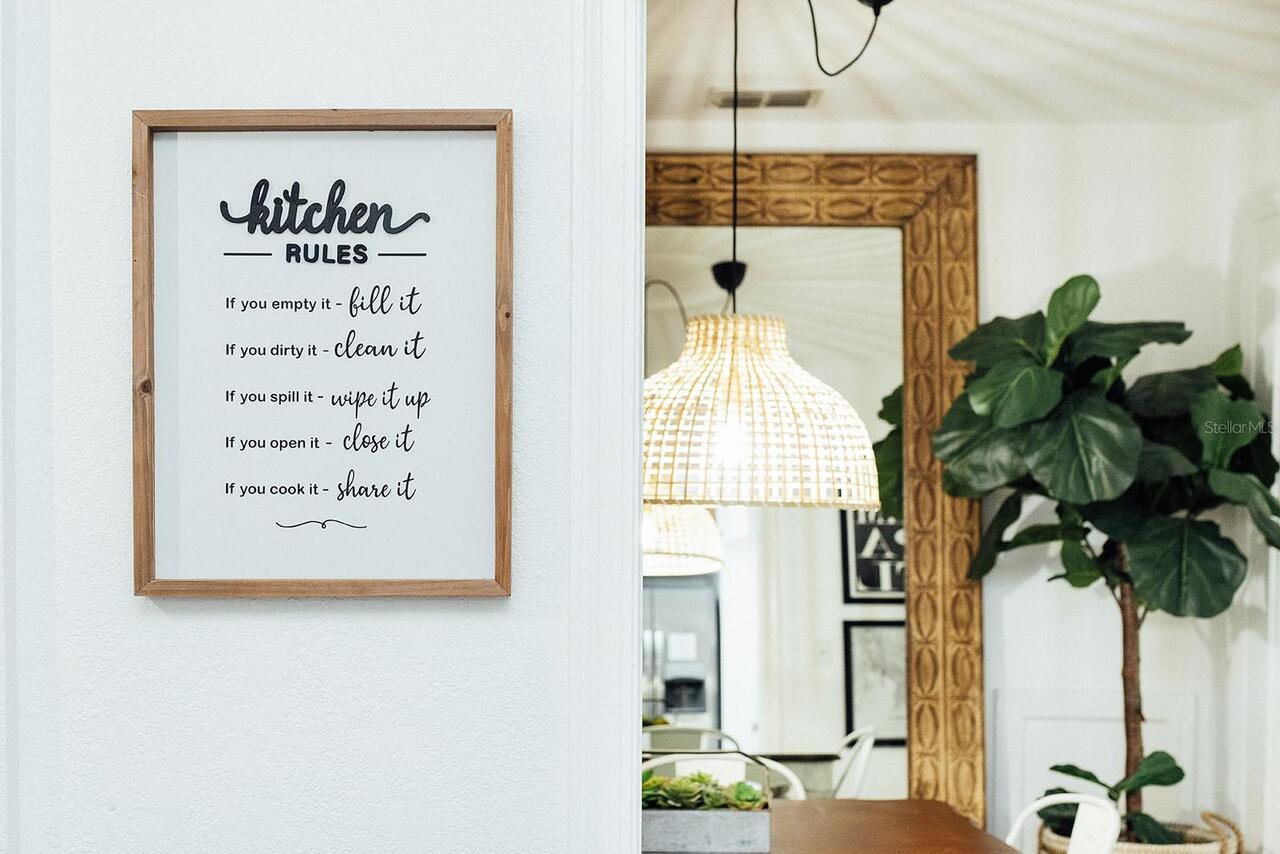 kitchen
RULES
If you empty it - fill it
If you dirty it - clean it
If you spill it - wipe it up
If you open it - close it
If you cook it - share it
Stellar MLS